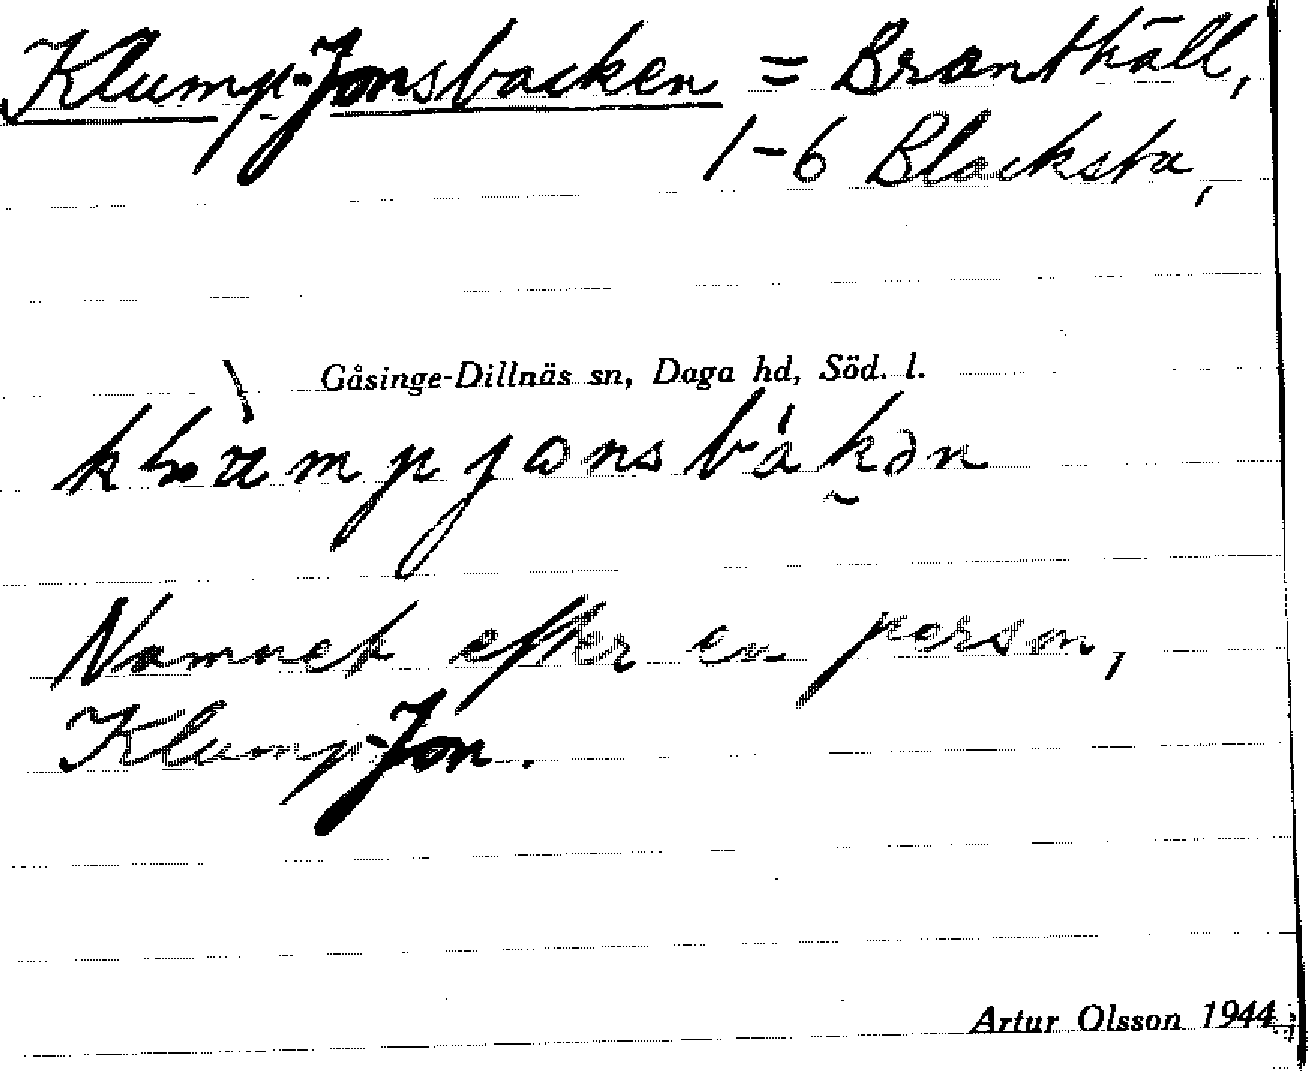 Klump-Jonsbacken = Branthäll,
1-6 Blacksta,
Gåsinge-Dillnäs sn, Daga hd, Söd. l.
Namnet efter en person,
Klump-Jon.
Artur Olsson 1944